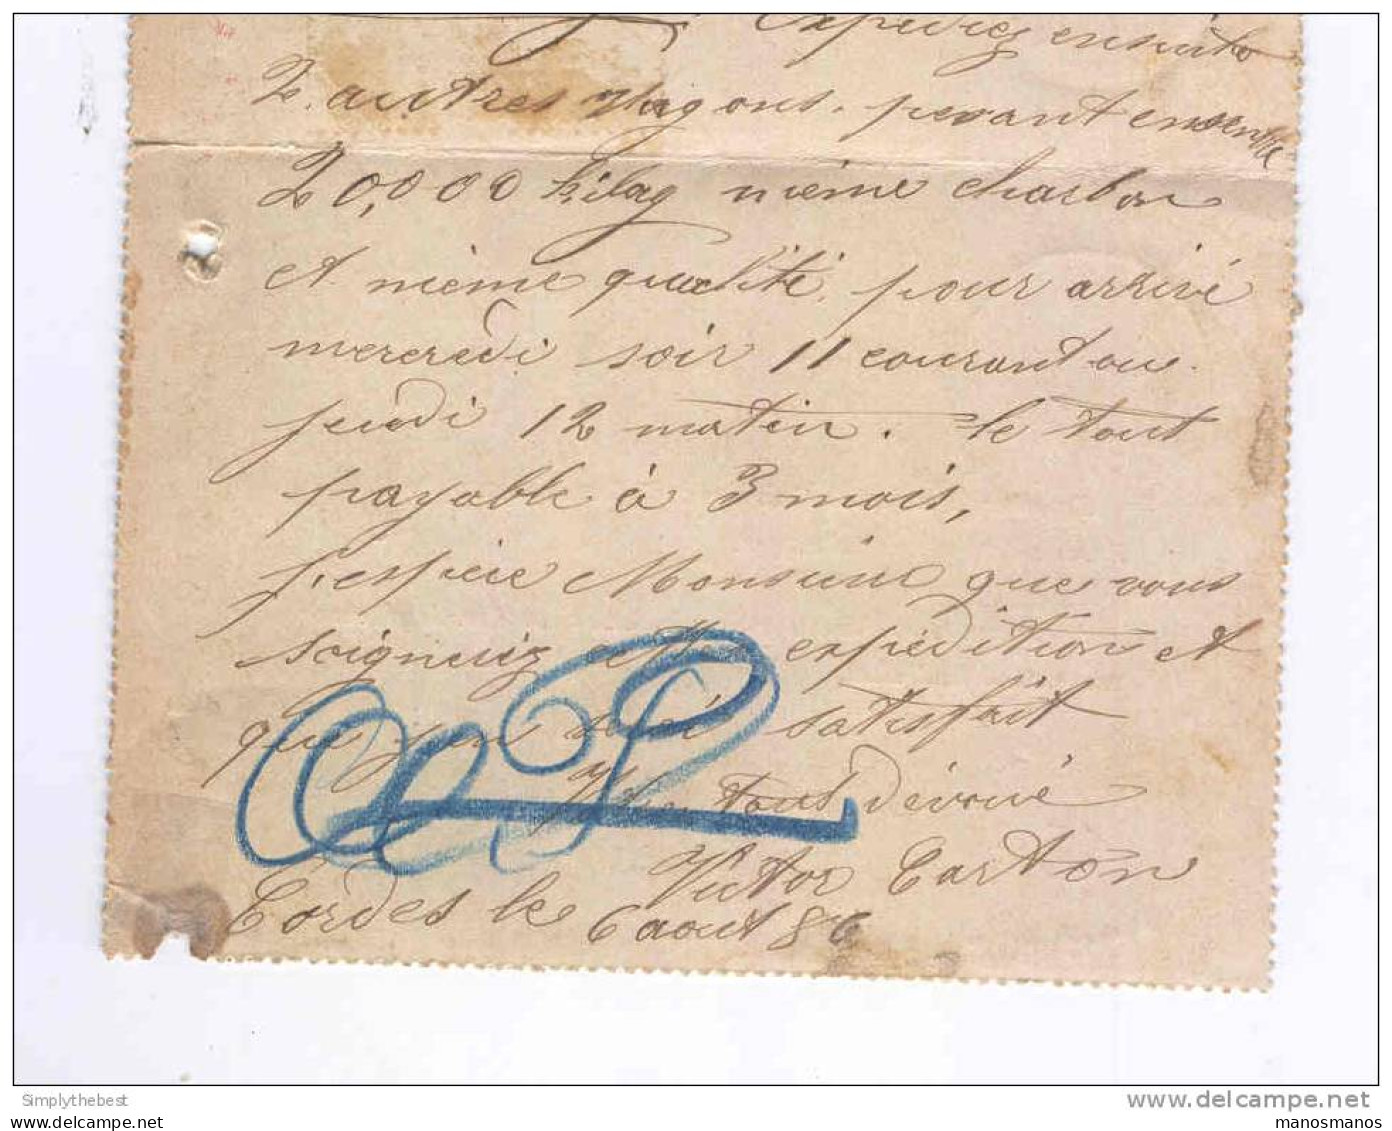 Expediez ensuite
2 autres wagons. pesant ensemble
20,000 kilog même charbon
et même qualité, pour arrivé
mercredi soir 11 courant ou
jeudi 12 matin. le tout
payable à 3 mois,
J'espère Monsieur que vous
soignerez cette expédition et
que j'en serai satisfait
Votre tout dévoué
Victor Carton
Cordes le 6 aout 86
Simplythebest
www.delcampe.net
manosmanos
© delcampe.net
manosmanos